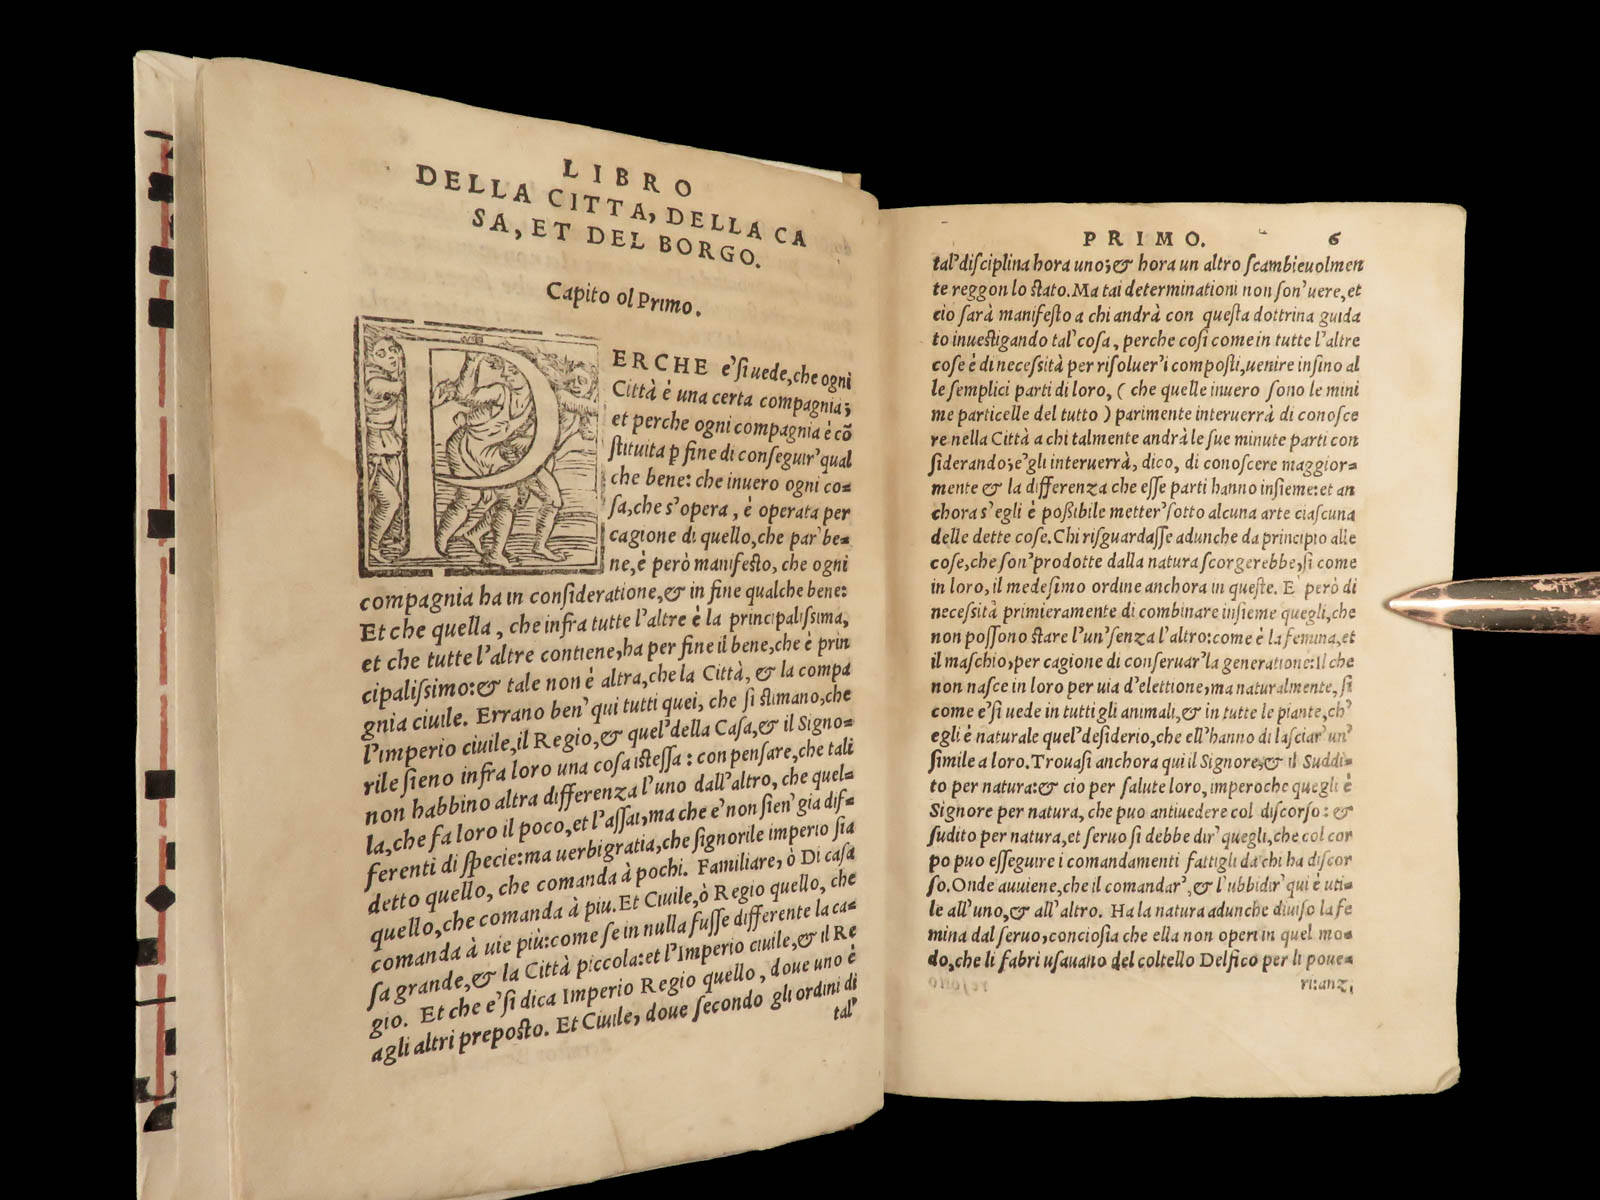 LIBRO
DELLA CITTA, DELLA CA
SA, ET DEL BORGO.
Capito ol Primo.
PERCHE e' si uede, che ogni
Città è una certa compagnia;
et perche ogni compagnia è cõ
stituita p fine di conseguir' qual
che bene: che inuero ogni co=
sa, che s'opera, è operata per
cagione di quello, che par' be=
ne, è però manifesto, che ogni
compagnia ha in consideratione, & in fine qualche bene:
Et che quella, che infra tutte l'altre è la principalissima,
et che tutte l'altre contiene, ha per fine il bene, che è prin
cipalissimo: & tale non è altra, che la Città, & la compa
gnia ciuile. Errano ben' qui tutti quei, che si stimano, che
l'imperio ciuile, il Regio, & quel' della Casa, & il Signo=
rile sieno infra loro una cosa istessa: con pensare, che tali
non habbino altra differenza l'uno dall'altro, che quel=
la, che fa loro il poco, et l'assai, ma che e' non sien' gia dif=
ferenti di specie: ma uerbigratia, che signorile imperio sia
detto quello, che comanda à pochi. Familiare, ò Di casa
quello, che comanda à piu. Et Ciuile, ò Regio quello, che
comanda à uie più: come se in nulla fusse differente la ca=
sa grande, & la Città piccola: et l'Imperio ciuile, & il Re
gio. Et che e' si dica Imperio Regio quello, doue uno è
agli altri preposto. Et Ciuile, doue secondo gli ordini di
tal'
PRIMO. 6
tal' disciplina hora uno; & hora un altro scambieuolmen
te reggon lo stato. Ma tai determinationi non son' uere, et
ciò sarà manifesto a chi andrà con questa dottrina guida
to inuestigando tal' cosa, perche cosi come in tutte l'altre
cose è di necessità per risoluer' i composti, uenire insino al
le semplici parti di loro, ( che quelle inuero sono le mini
me particelle del tutto ) parimente interuerrà di conosce
re nella Città a chi talmente andrà le sue minute parti con
siderando; e' gli interuerrà, dico, di conoscere maggior=
mente & la differenza che esse parti hanno insieme: et an
chora s'egli è possibile metter' sotto alcuna arte ciascuna
delle dette cose. Chi risguardasse adunche da principio alle
cose, che son' prodotte dalla natura scorgerebbe, si come
in loro, il medesimo ordine anchora in queste. E però di
necessità primieramente di combinare insieme quegli, che
non possono stare l'un' senza l'altro: come è la femina, et
il maschio, per cagione di conseruar' la generatione: Il che
non nasce in loro per uia d'elettione, ma naturalmente, si
come e' si uede in tutti gli animali, & in tutte le piante, ch'
egli è naturale quel' desiderio, che ell'hanno di lasciar' un'
simile a loro. Trouasi anchora qui il Signore, & il Suddi=
to per natura: & cio per salute loro, imperoche quegli è
Signore per natura, che puo antiuedere col discorso: &
sudito per natura, et seruo si debbe dir' quegli, che col cor
po puo esseguire i comandamenti fattigli da chi ha discor
so. Onde auuiene, che il comandar', & l'ubbidir' qui è uti=
le all'uno, & all'altro. Ha la natura adunche diuiso la fe
mina dal seruo, conciosia che ella non operi in quel mo=
do, che li fabri usauano del coltello Delfico per li poue=